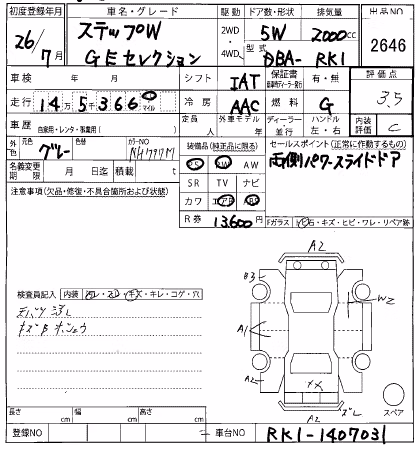 初度登録年月 車名・グレード 駆動 ドア数・形状 排気量 出品NO
26/7月 ステップW 2WD 5W 2000cc 2646
G Eセレクション 4WD 型式 DBA- RK1
車検 年 月 シフト IAT 保証書 有・無 評価点
走行 14万5千366 マイル 冷房 AAC 燃料 G 3.5
車歴 自家用・レンタ・事業用( ) 定員 人 外車モデル 年 ディーラー 並行 ハンドル 左・右 内装評価 C
外色 元色 グレー 色替 カラーNO NH797M 装備品(純正品に限る) セールスポイント(正常に作動するもの)
PS PW AW 両側パワースライドドア
名義変更期限 月 日迄 積載 t SR TV ナビ
注意事項(欠品・修復・不具合箇所および状態) カワ エアB ABS
R券 13,600円 Fガラス 石・キズ・ヒビ・ワレ・リペア跡
A2
B3
W2
検査員記入 内装 ヨゴレ・スレ・キズ・キレ・コゲ・穴
A1
A2
XX
長さ cm 幅 cm 高さ cm A2 ズレ スペア
登録NO 車台NO RK1-1407031